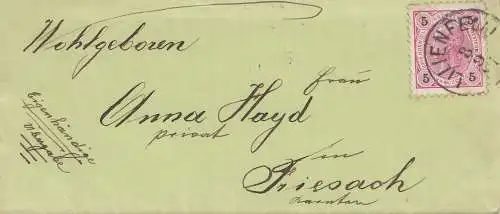 Wohlgeboren
Frau
Anna Hayd
privat
in
Friesach
Kärnten
Eigenhändige
Übergabe
5
5 5
LILIENFELD